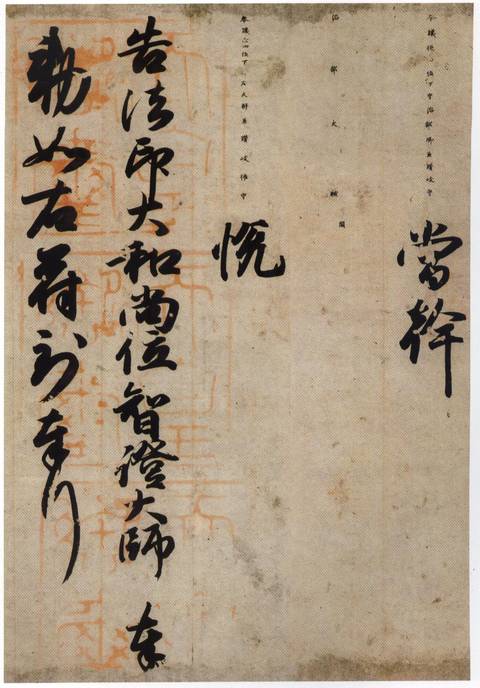 參議從四位下守治部卿兼讃岐守
當幹
治部大輔闕
參議從四位下左大辨兼讃岐權守
悦
告法印大和尚位智證大師奉
勅如右符到奉行